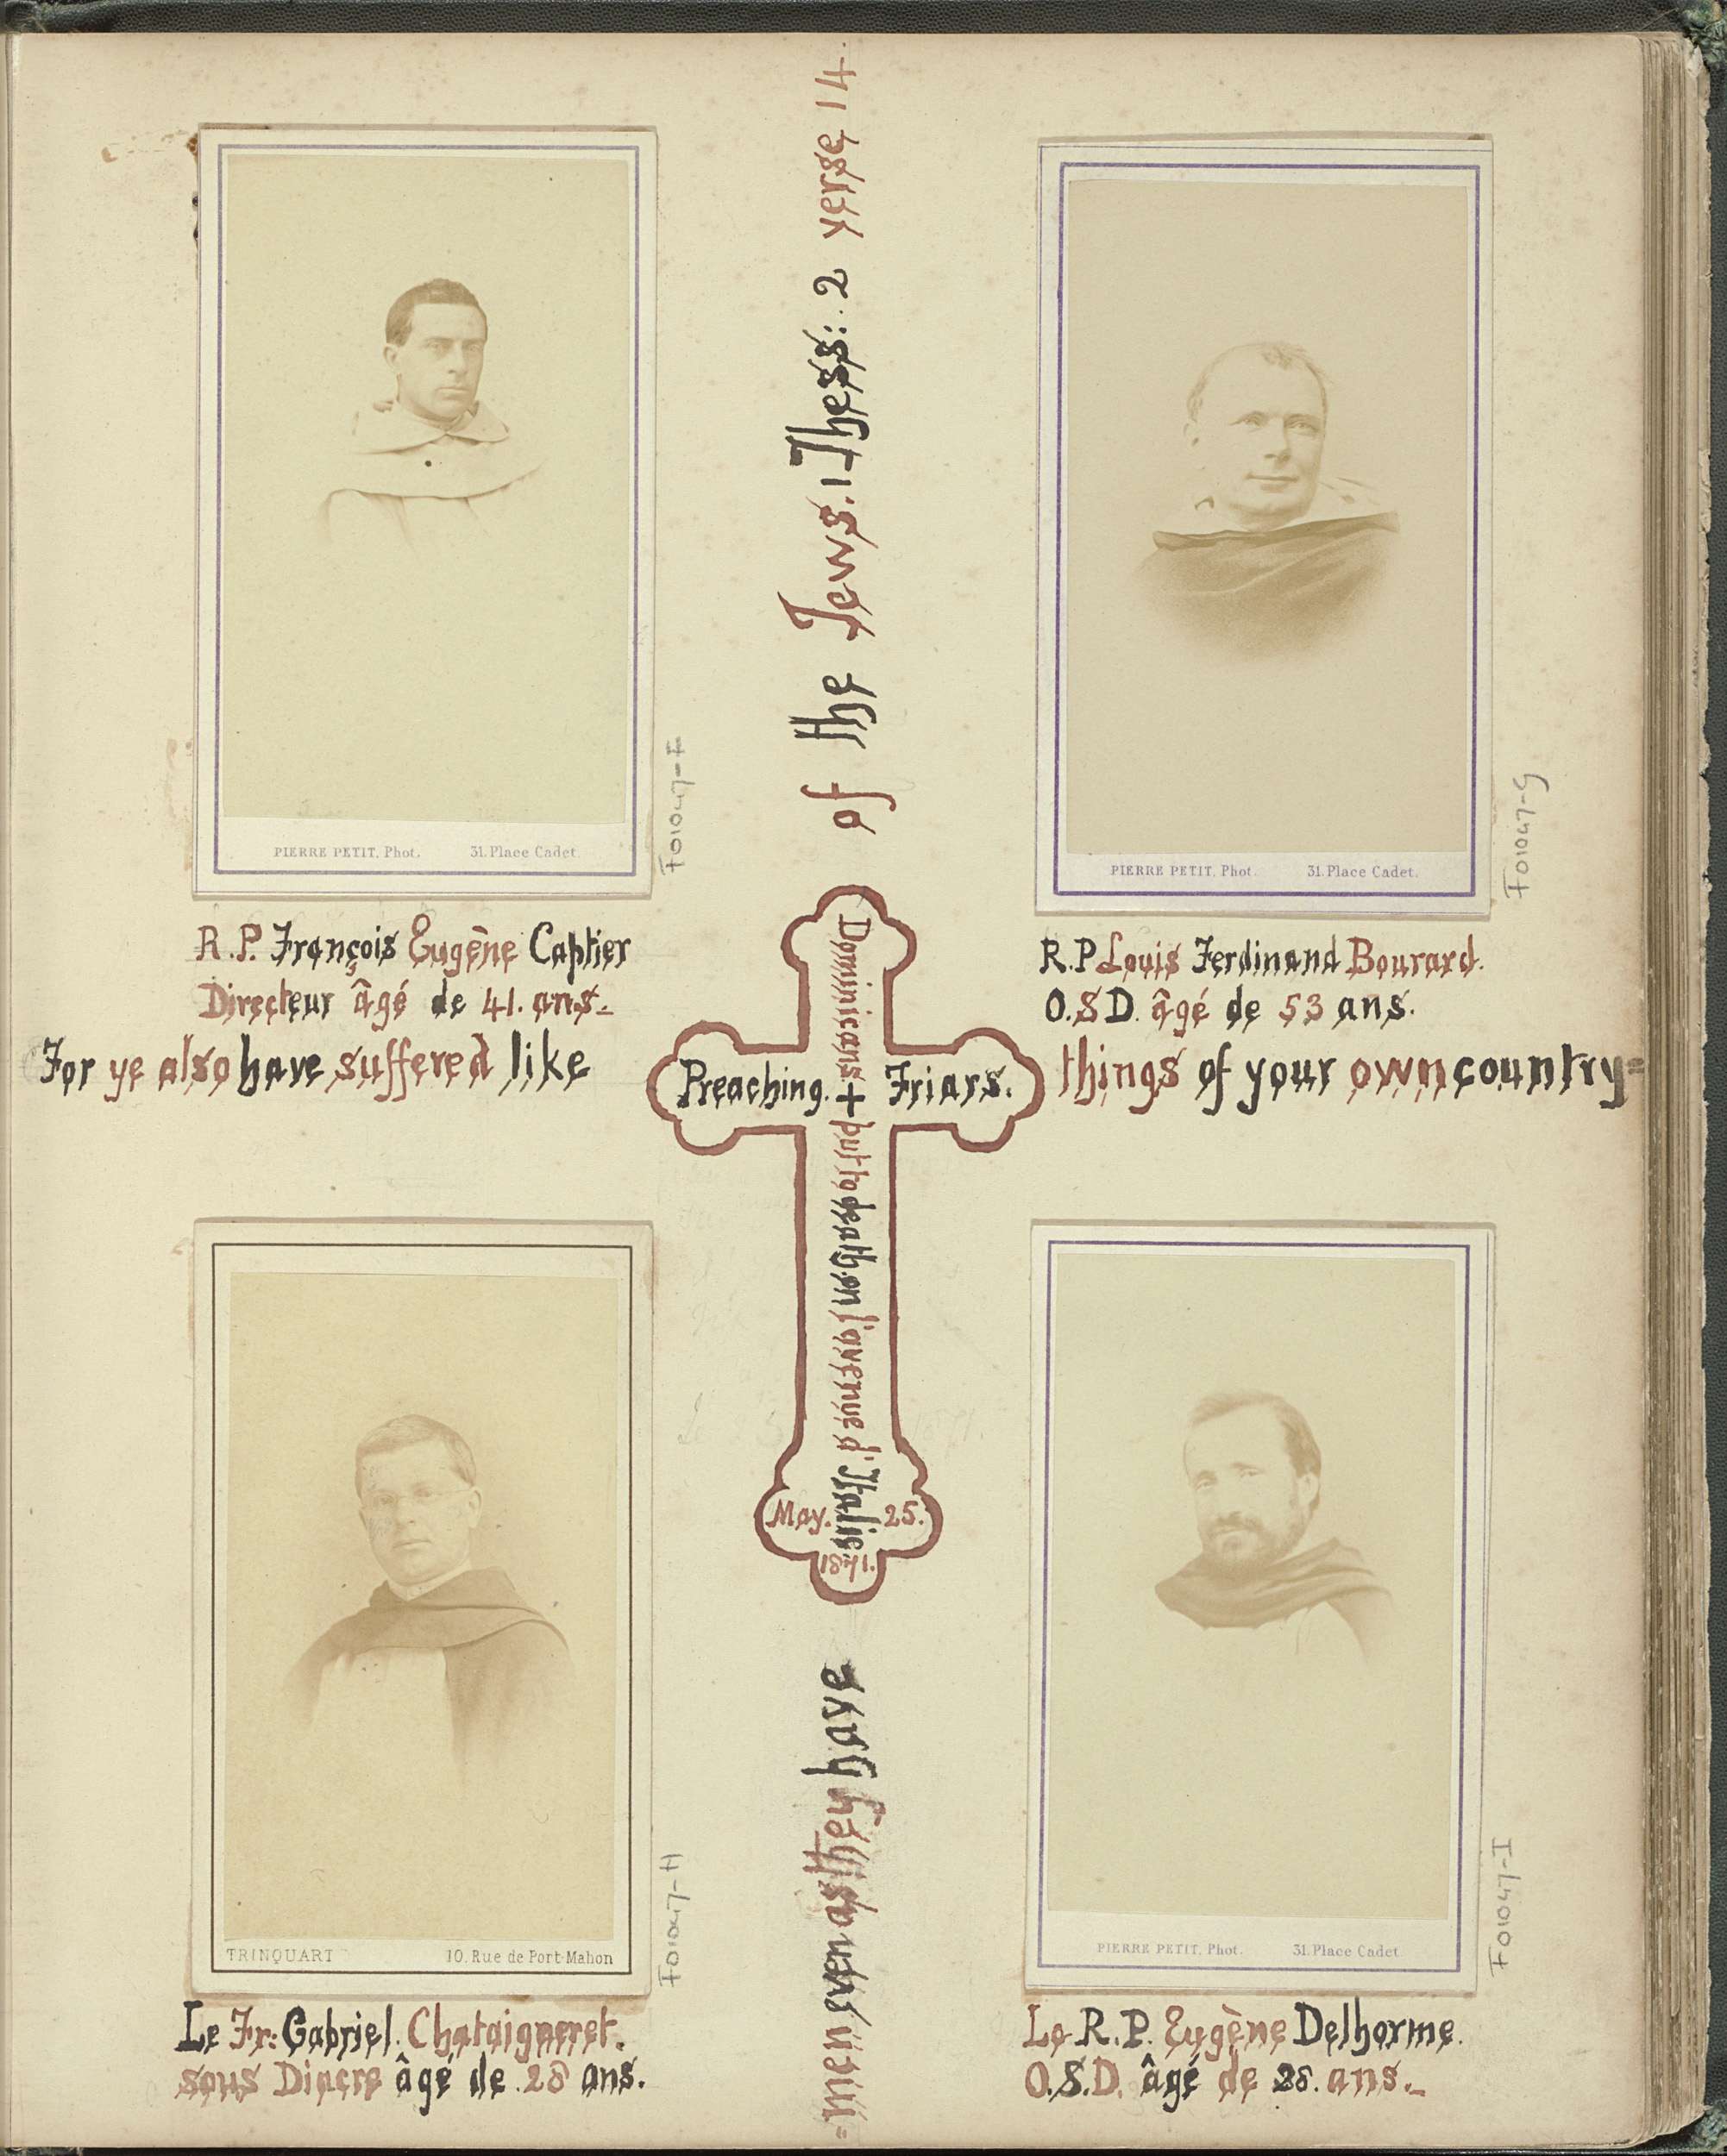 PIERRE PETIT, Phot. 31. Place Cadet.
F01047-F
R.P. François Eugène Captier
Directeur âgé de 41. ans.
PIERRE PETIT, Phot. 31. Place Cadet.
F01047-G
R.P Louis Ferdinand Bourard.
O.S.D. âgé de 53 ans.
For ye also have suffered like
things of your own country=
=men even as they have
of the Jews. 1 Thess: 2 verse 14
Preaching. + Friars.
Dominicans + put to death on l'avenue d'Italie
May. 25.
1871.
TRINQUART 10. Rue de Port-Mahon
F01047-H
Le Fr: Gabriel. Chataigneret.
sous Diacre âgé de 28 ans.
PIERRE PETIT, Phot. 31. Place Cadet
F01047-I
Le R.P. Eugène Delhorme.
O.S.D. âgé de 28. ans.